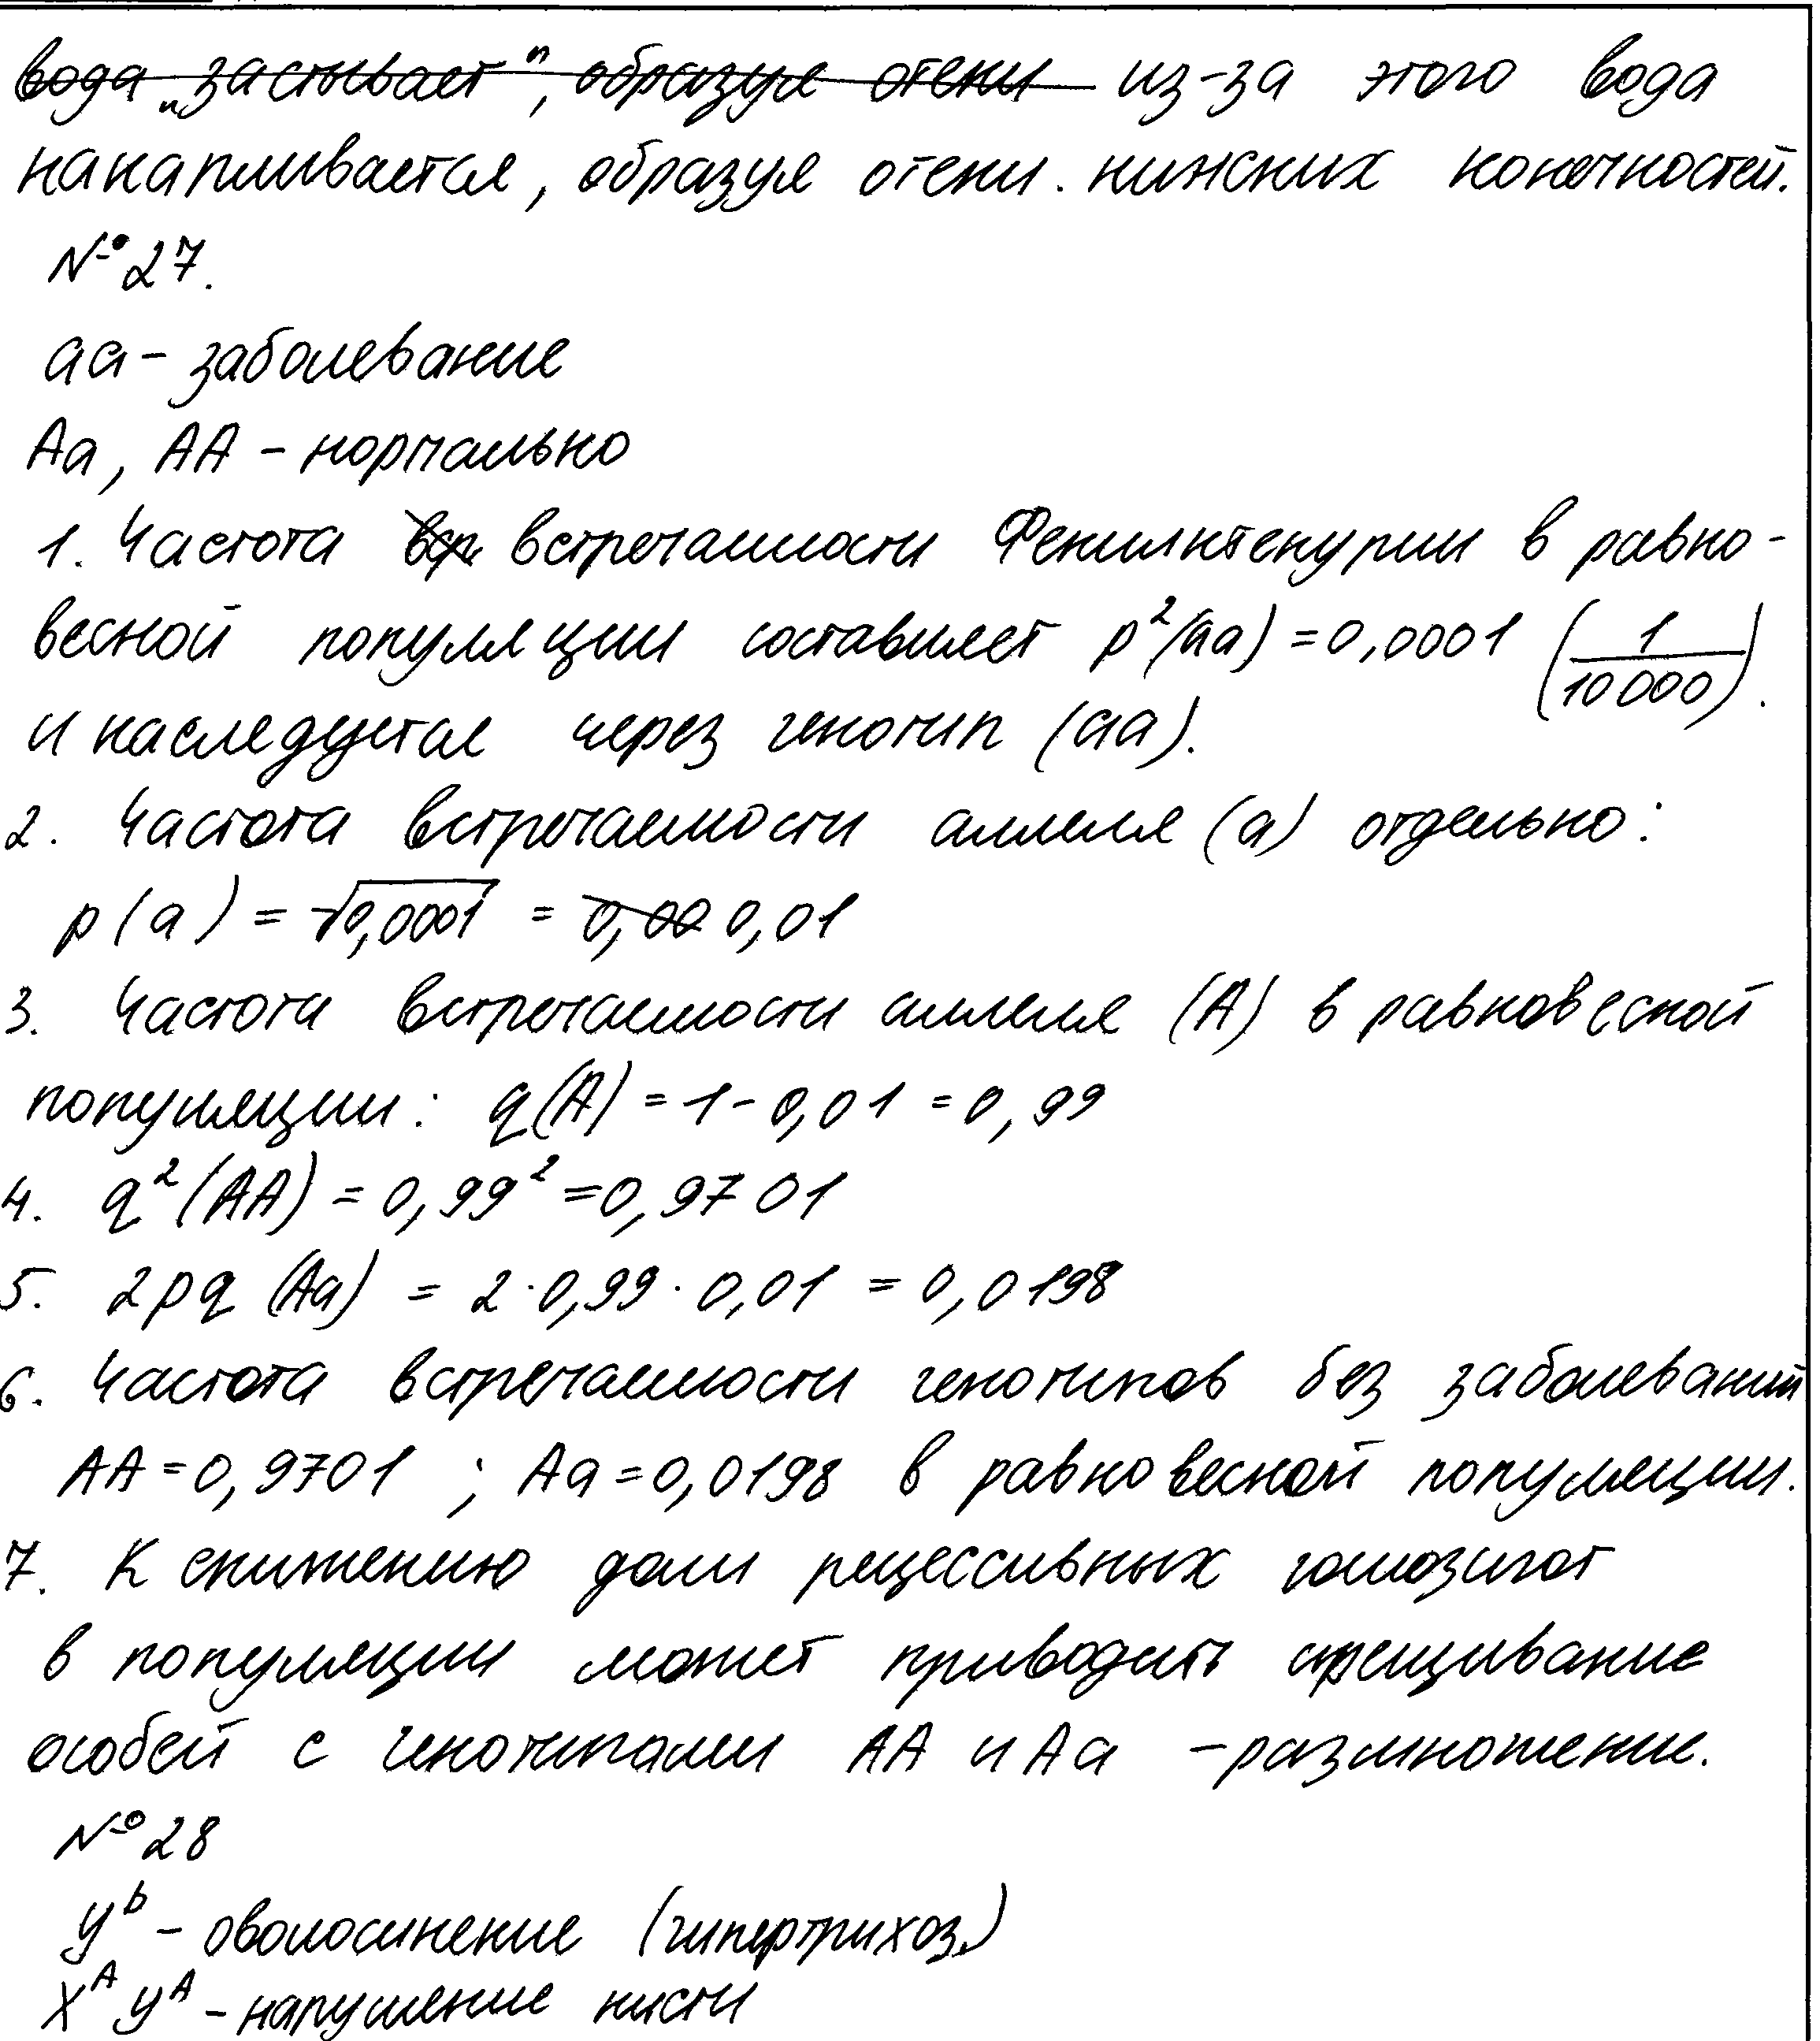 вода „застывает", образуя отеки из-за этого вода
накапливается, образуя отеки. нижских конечностей.
№27.
аа - заболевание
Аа, АА - нормально
1. Частота вср встречаемости Фенилктенурии в равно-
весной популяции составляет p²(аа) = 0,0001 (1/10000).
и наследуется через генотип (аа).
2. Частота встречаемости аллеля (а) отдельно:
p(а) = √0,0001 = 0,00 0,01
3. Частота встречаемости аллеля (А) в равновесной
популяции: q(А) = 1 - 0,01 = 0,99
4. q²(АА) = 0,99² = 0,9701
5. 2pq (Аа) = 2·0,99·0,01 = 0,0198
6. Частота встречаемости генотипов без заболеваний
АА = 0,9701 ; Аа = 0,0198 в равновесной популяции.
7. К снижению доли рецессивных гомозигот
в популяции может приводить скрещивание
особей с генотипами АА и Аа - размножение.
№28
Yᵇ - оволосинение (гипертрихоз.)
Xᴬ Yᴬ - нарушение кисти